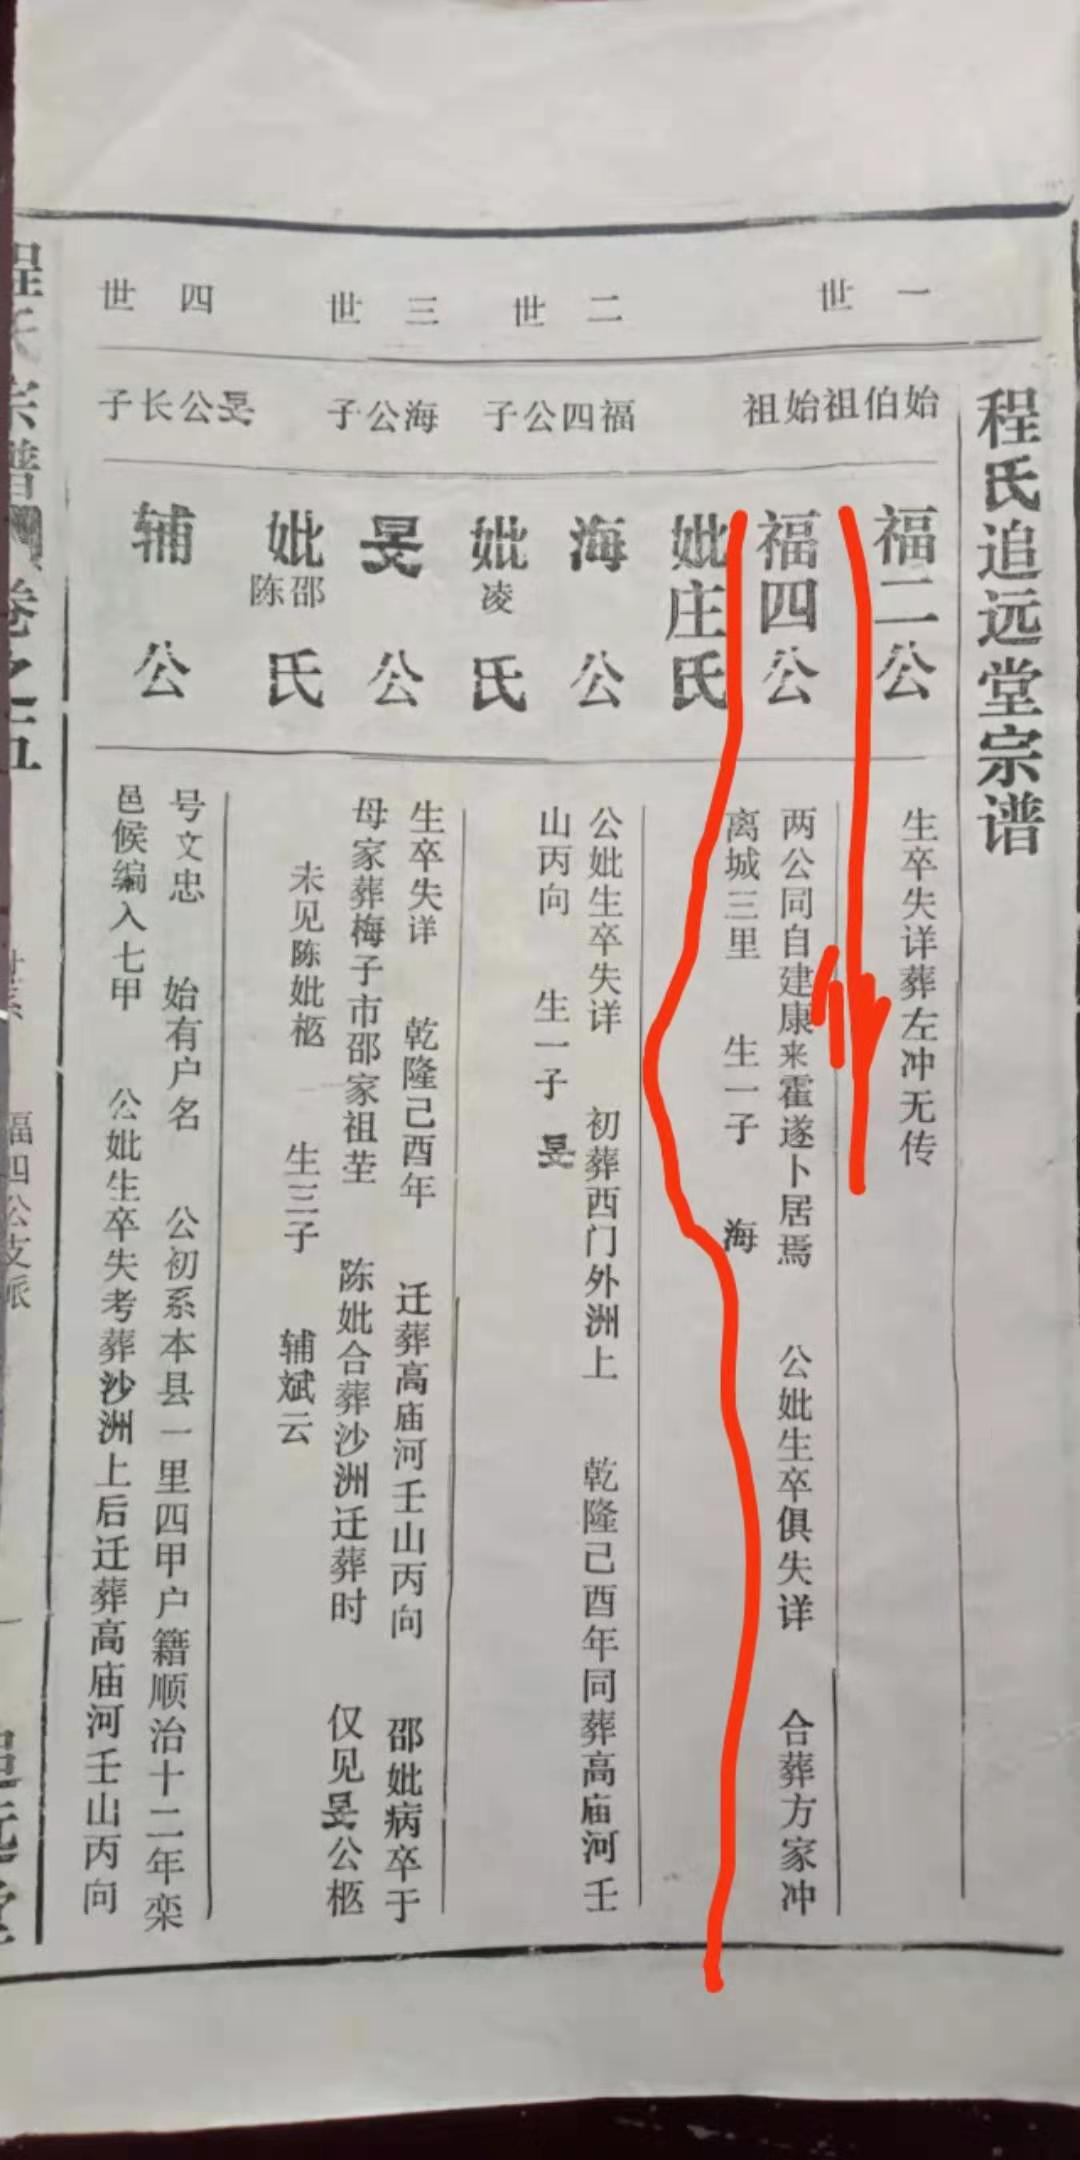 程氏追远堂宗谱
一世
始伯祖
始祖
福二公
生卒失详葬左冲无传
福四公
两公同自建康来霍遂卜居焉 公妣生卒俱失详 合葬方家冲
离城三里 生一子 海
妣庄氏
二世
福四公子
海公
公妣生卒失详 初葬西门外洲上 乾隆己酉年同葬高庙河壬
山丙向 生一子 旻
妣凌氏
三世
海公子
旻公
生卒失详 乾隆己酉年 迁葬高庙河壬山丙向 邵妣病卒于
母家葬梅子市邵家祖茔 陈妣合葬沙洲迁葬时 仅见旻公柩
未见陈妣柩 生三子 辅斌云
妣邵陈氏
四世
旻公长子
辅公
号文忠 始有户名 公初系本县一里四甲户籍顺治十二年栾
邑候编入七甲 公妣生卒失考葬沙洲上后迁葬高庙河壬山丙向
程氏宗谱 卷之五
福四公支派